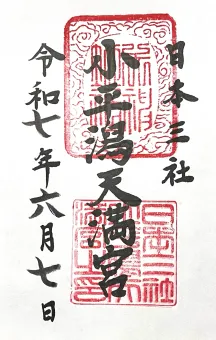 日本三社
小平潟天満宮
令和七年六月七日